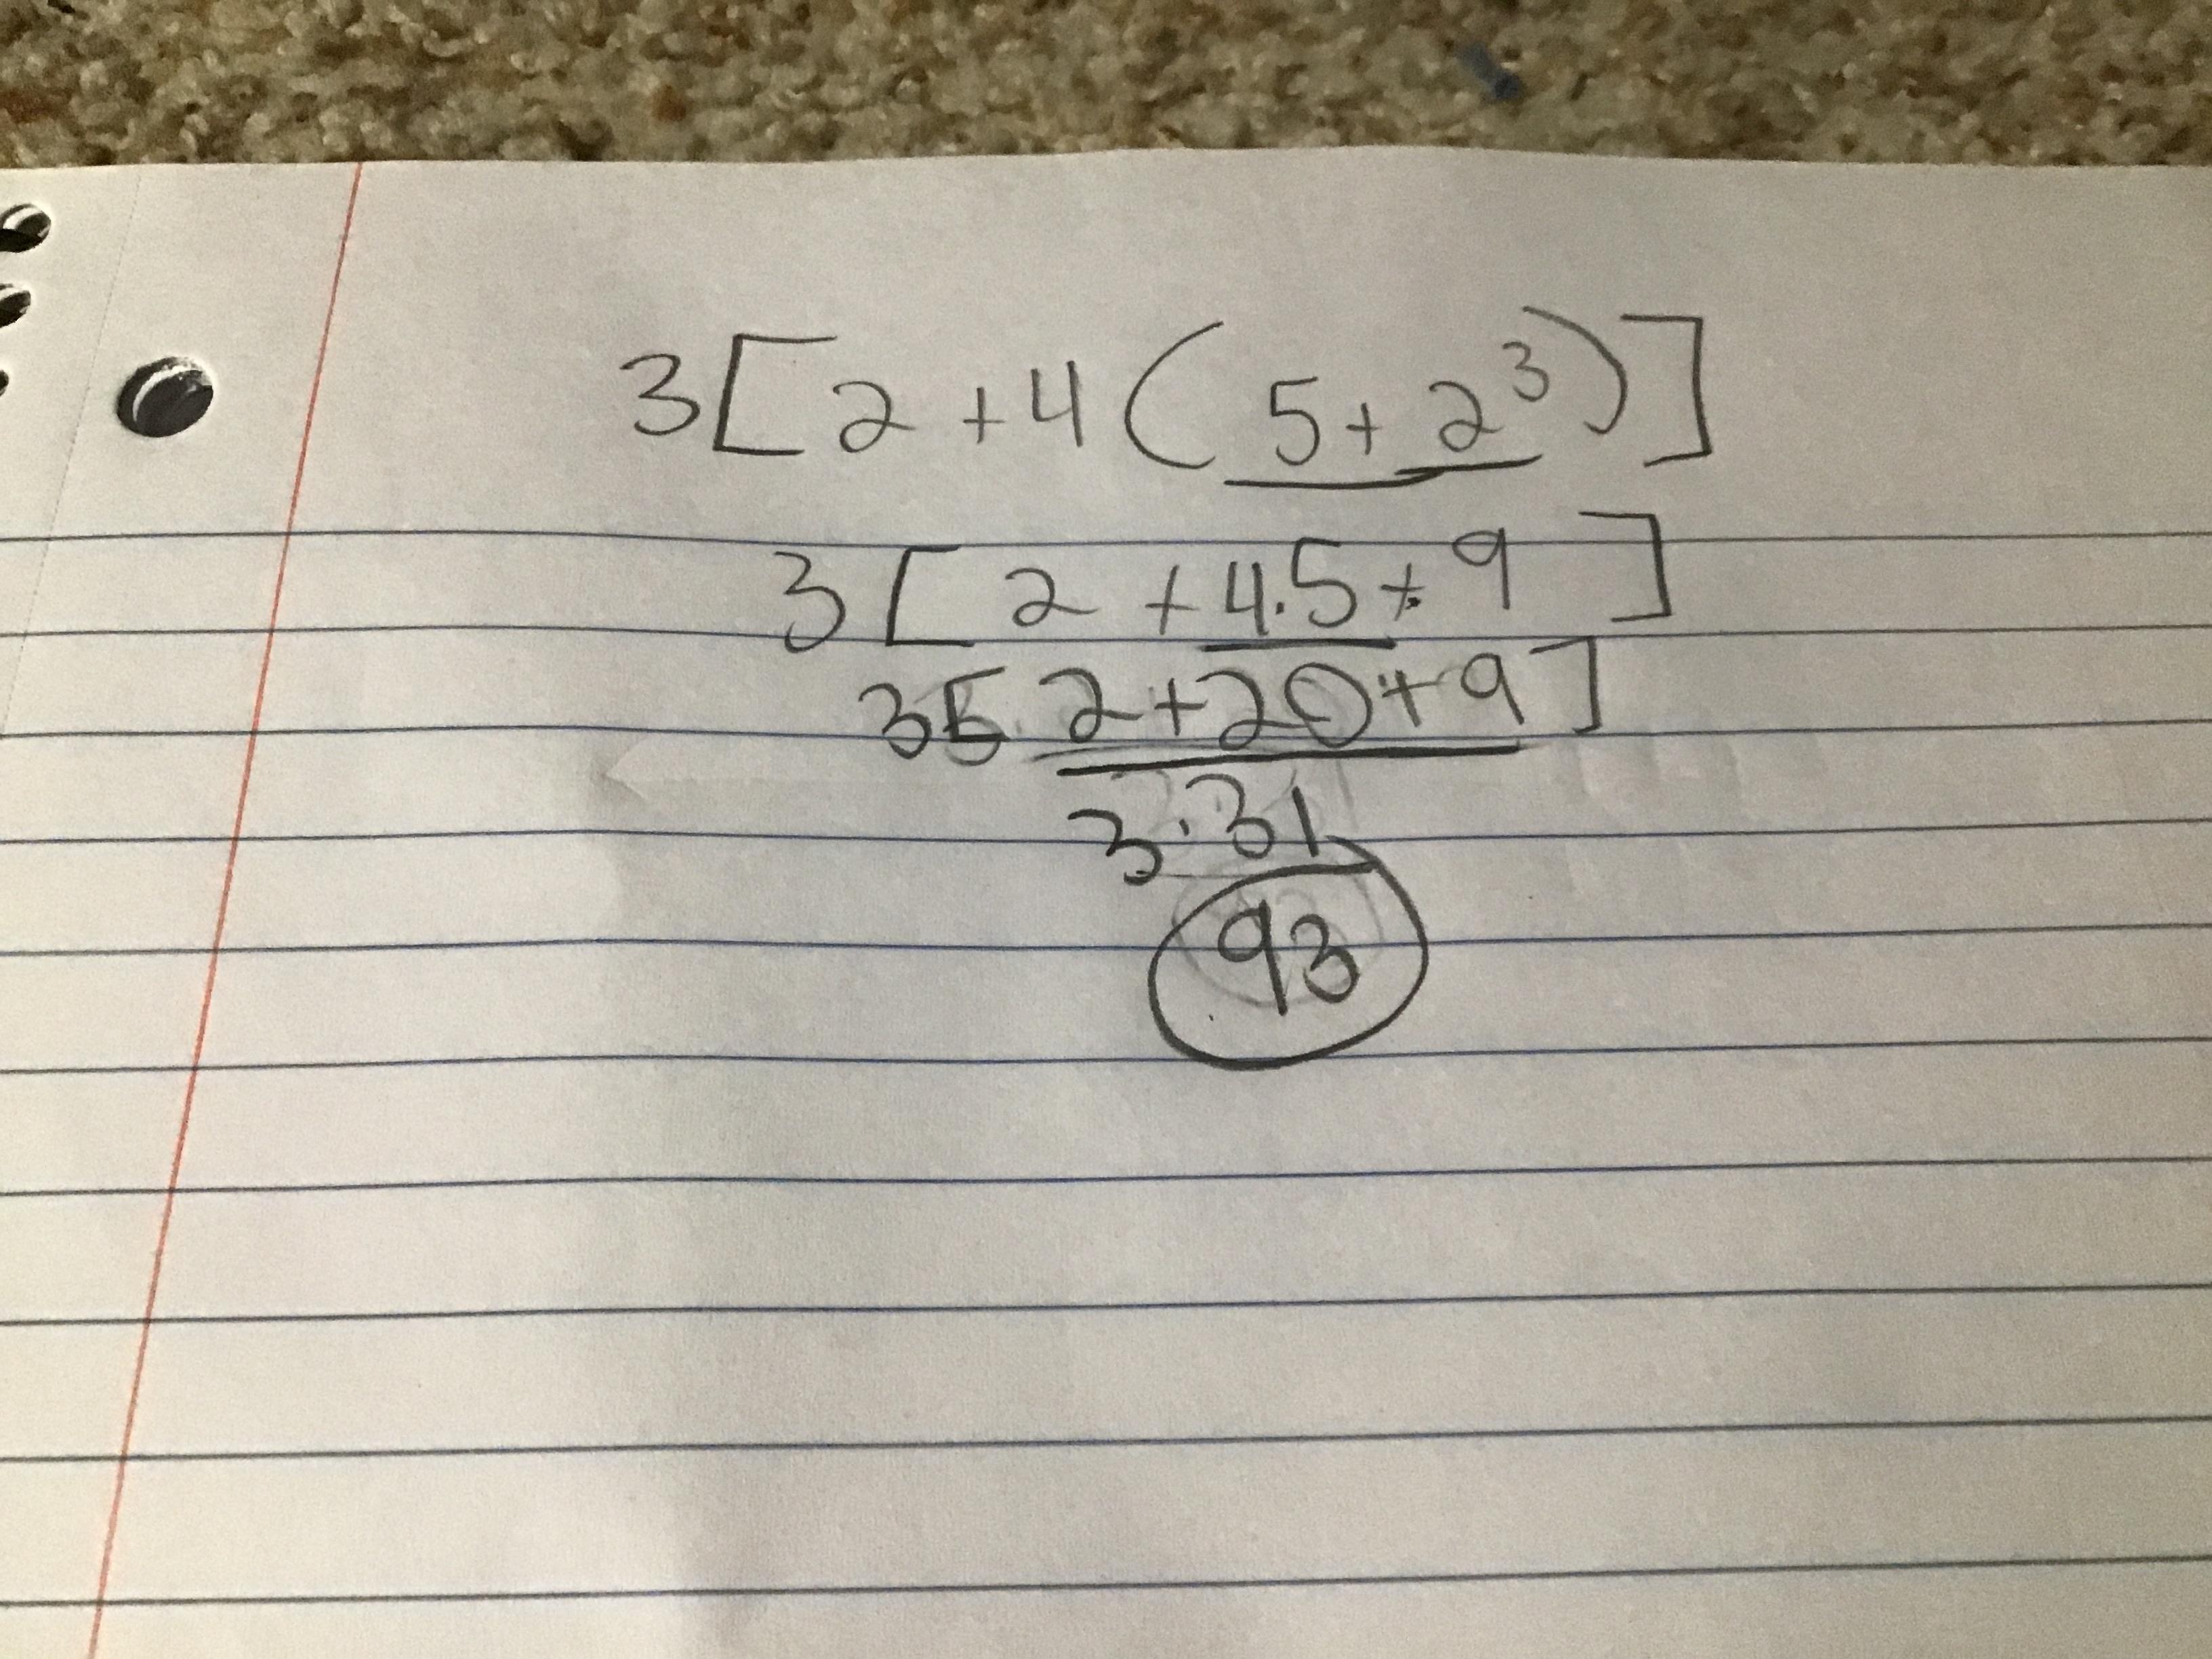 3[2+4(5+2³)]
3[2+4·5+9]
3[2+20+9]
3·31
93